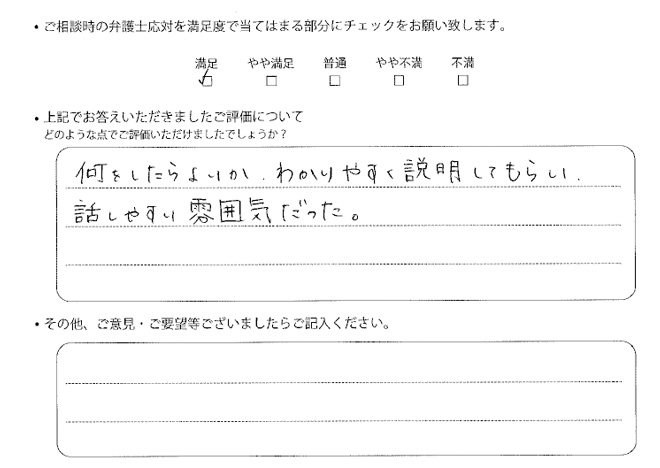 ・ご相談時の弁護士応対を満足度で当てはまる部分にチェックをお願い致します。
満足 やや満足 普通 やや不満 不満
✓□ □ □ □ □
・上記でお答えいただきましたご評価について
どのような点でご評価いただけましたでしょうか？
何をしたらよいか、わかりやすく説明してもらい、
話しやすい雰囲気だった。
・その他、ご意見・ご要望等ございましたらご記入ください。